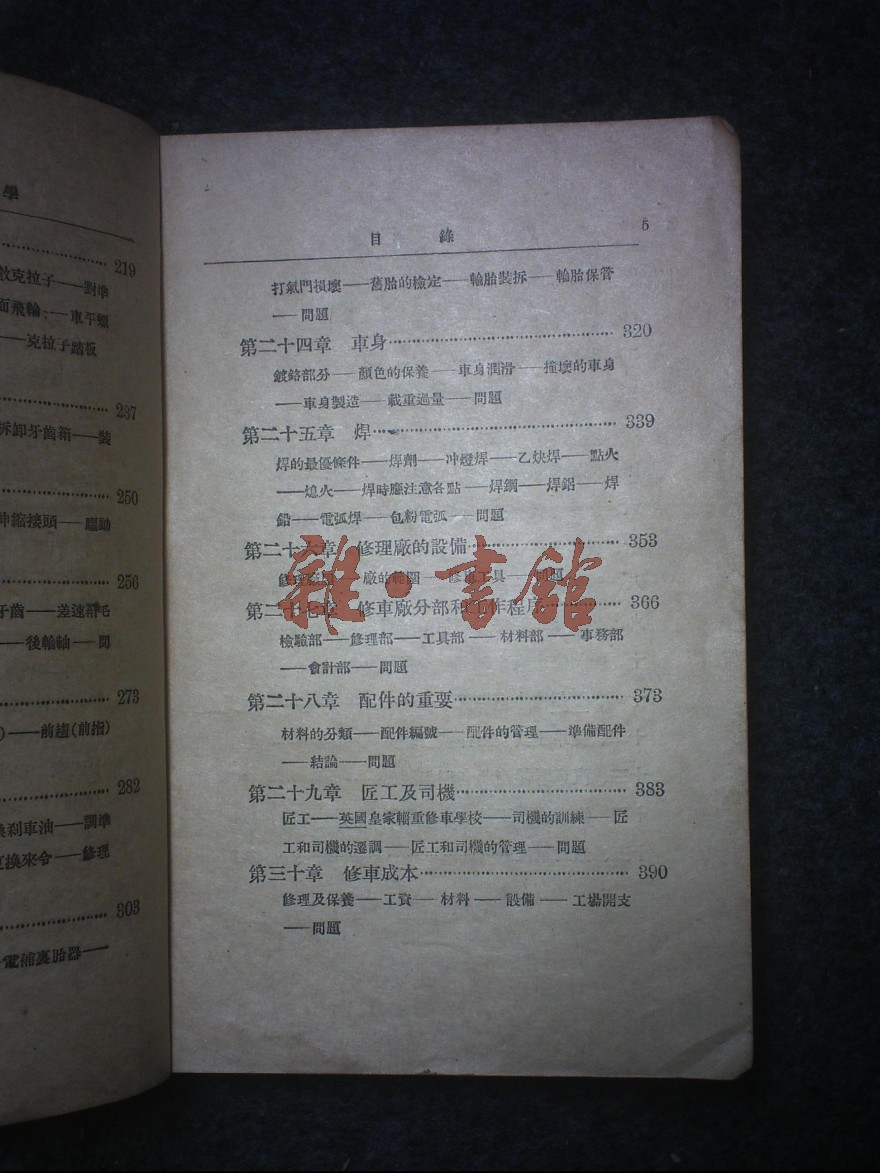 學
219
散克拉子——對準
面飛輪——車平螺
——克拉子踏板
237
拆卸牙齒箱——裝
250
伸縮接頭——驅動
256
牙齒——差速
——後輪軸——問
273
——前趨(前指)
282
換刹車油——調準
互換來令——修理
303
電補裏胎器——
目 錄 5
打氣門損壞——舊胎的檢定——輪胎裝拆——輪胎保管
——問題
第二十四章 車身 320
鍍鉻部分——顏色的保養——車身潤滑——撞壞的車身
——車身製造——載重過量——問題
第二十五章 焊 339
焊的最優條件——焊劑——冲燈焊——乙炔焊——點火
——熄火——焊時應注意各點——焊鋼——焊鋁——焊
鉛——電弧焊——包粉電弧——問題
第二十六章 修理廠的設備 353
廠的範圍——修車工具——問題
第二十七章 修車廠分部和工作程序 366
檢驗部——修理部——工具部——材料部——事務部
——會計部——問題
第二十八章 配件的重要 373
材料的分類——配件編號——配件的管理——準備配件
——結論——問題
第二十九章 匠工及司機 383
匠工——英國皇家輜重修車學校——司機的訓練——匠
工和司機的遷調——匠工和司機的管理——問題
第三十章 修車成本 390
修理及保養——工資——材料——設備——工場開支
——問題
雜·書館